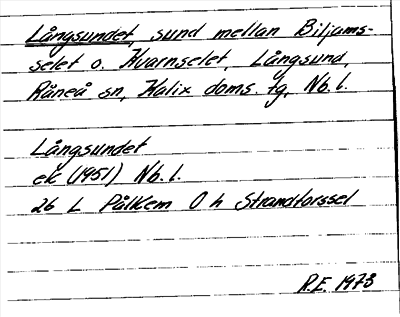 Långsundet, sund mellan Biljams-
selet o. Kvarnselet, Långsund,
Råneå sn, Kalix doms. tg, Nb. l.
Långsundet
ek (1951) Nb. l.
26 L Pålkem 0 h Strandforssel
R.E. 1973